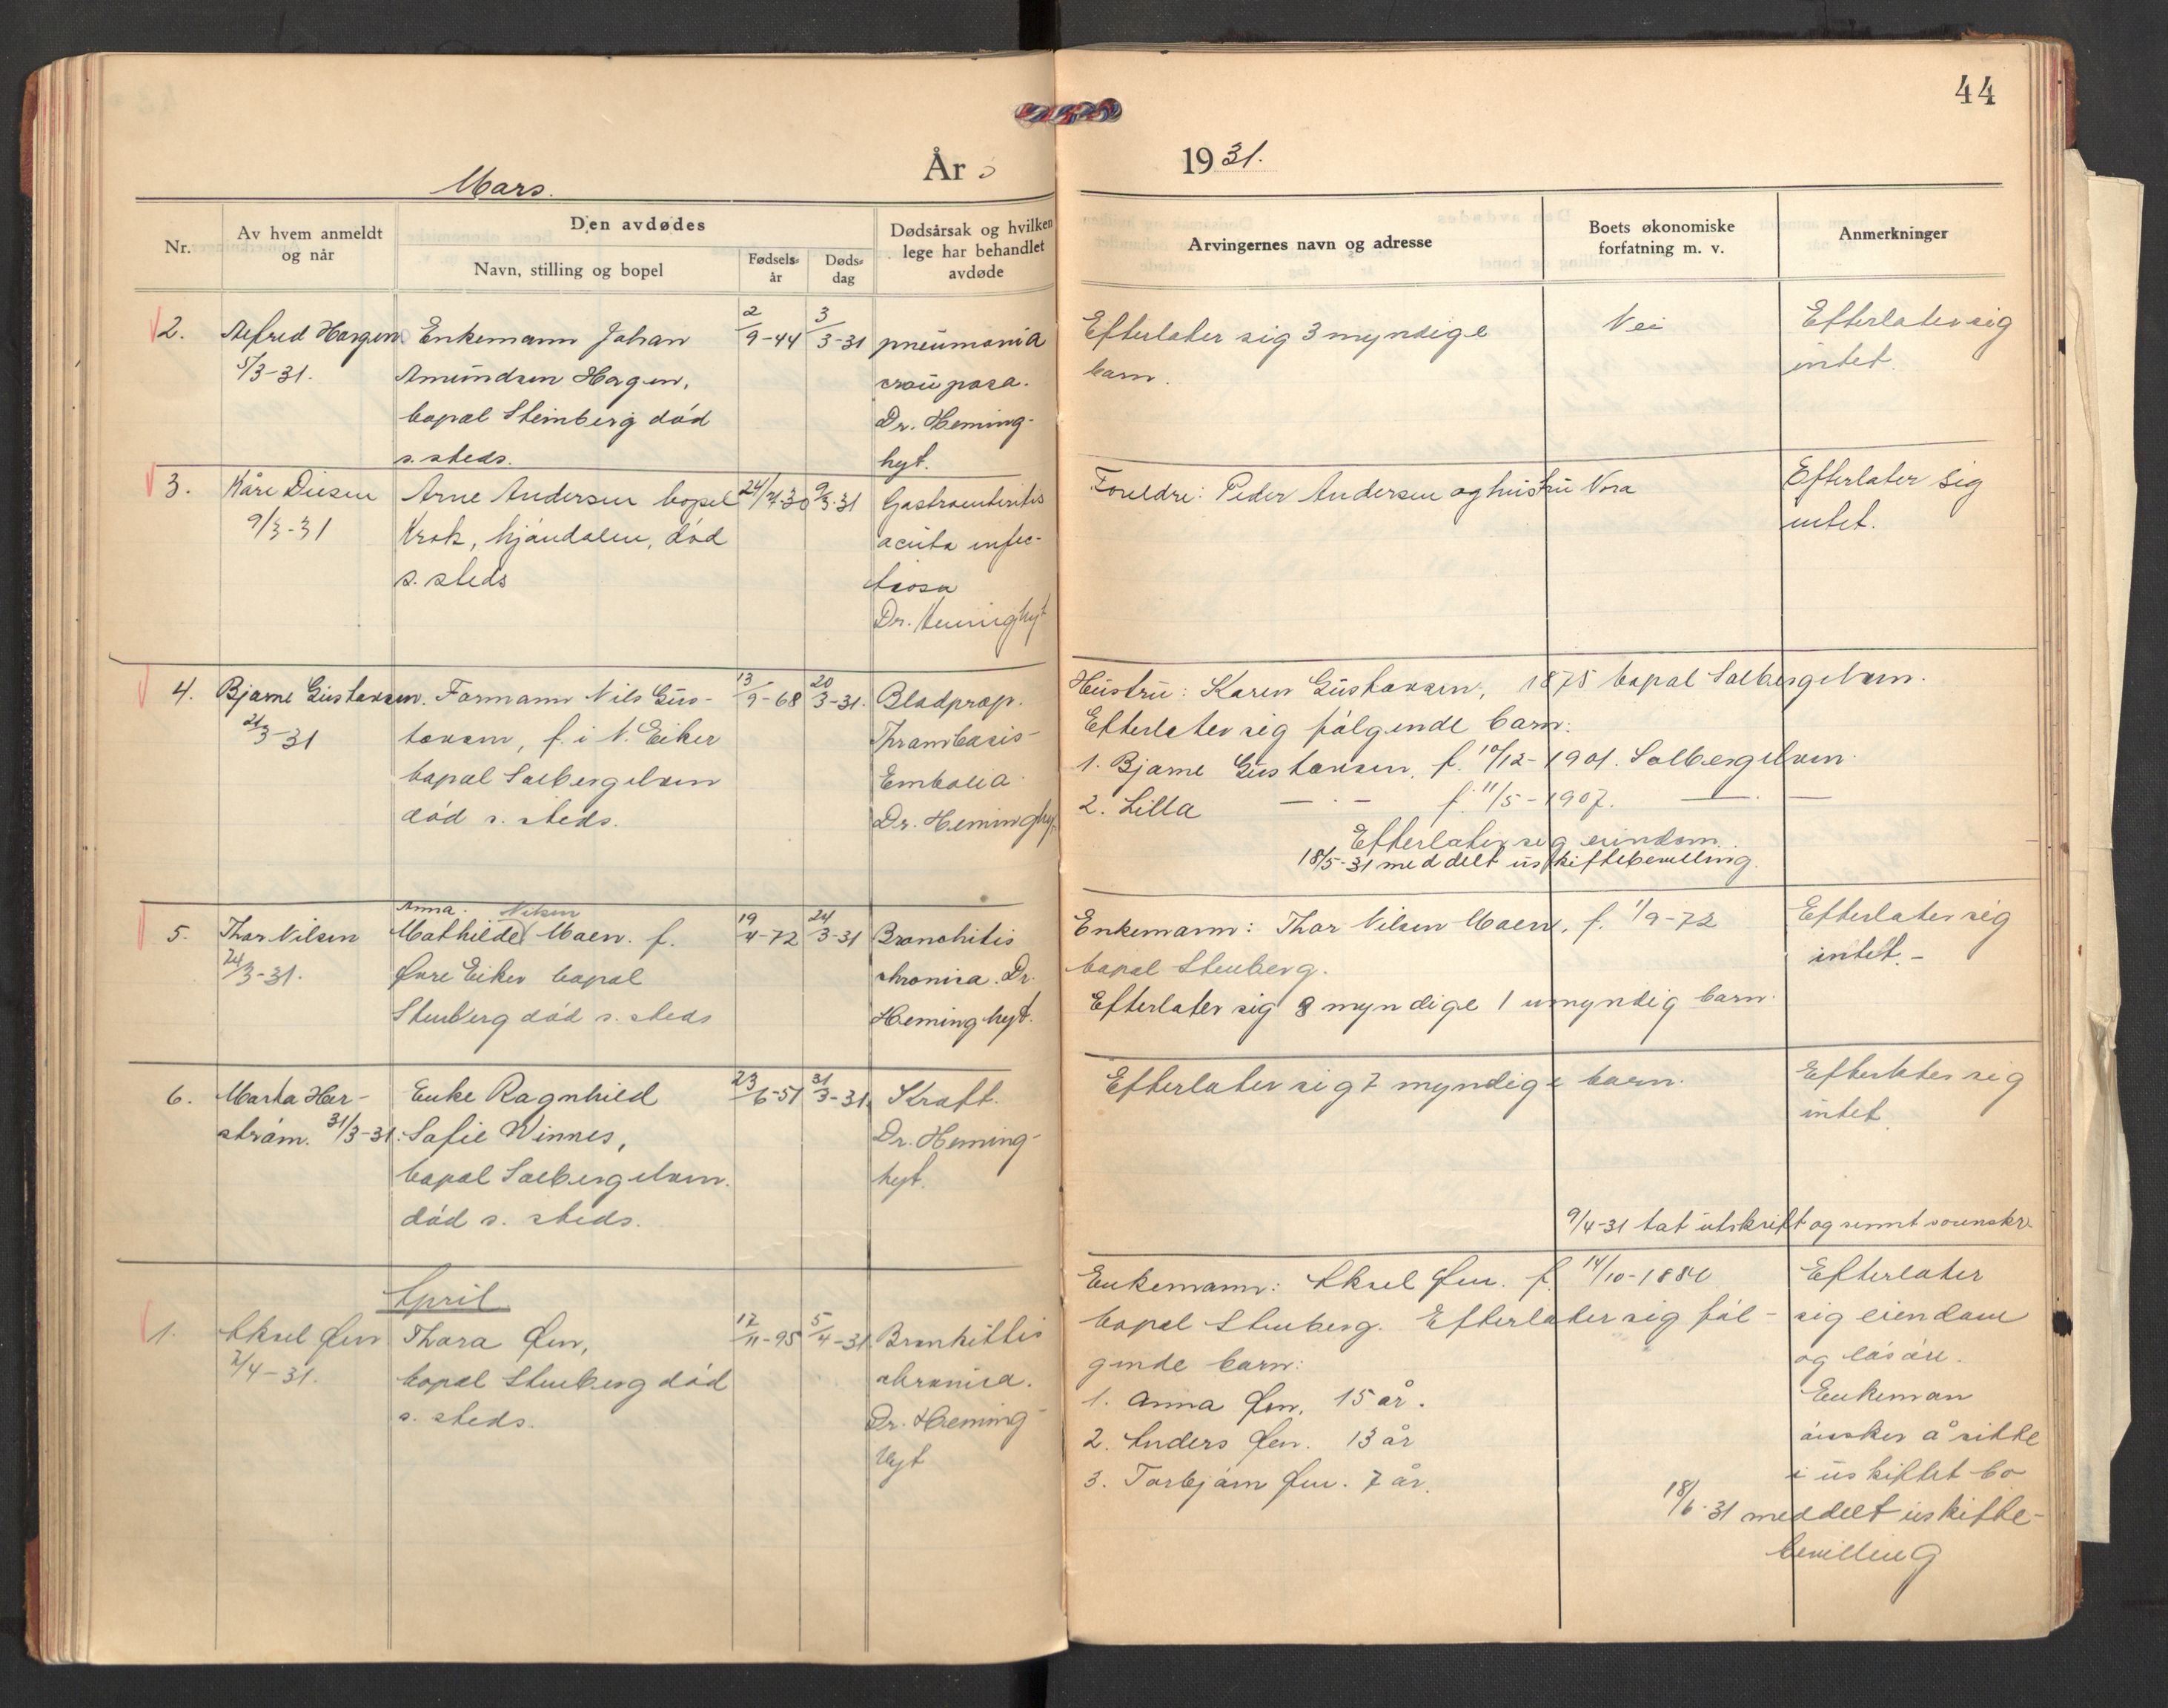 44
År 1931.
Mars.
Nr.
Av hvem anmeldt
og når
Den avdødes
Navn, stilling og bopel
Fødsels-
år
Døds-
dag
Dødsårsak og hvilken
lege har behandlet
avdøde
Arvingernes navn og adresse
Boets økonomiske
forfatning m. v.
Anmerkninger
2.
Alfred Horgen
5/3-31.
Enkemann Johan
Amundsen Horgen,
bopæl Steinberg död
s. steds.
2/9-44
3/3-31
pneumonia
crouposa.
Dr. Heming-
hyt.
Efterlater sig 3 myndige
barn.
Nei
Efterlater sig
intet.
3.
Kåre Diesen
9/3-31
Arne Andersen bopel
Krok, Mjöndalen, död
s. steds
24/7-30
9/3-31
Gastroenteritis
acuta infec-
tiosa
Dr. Heminghyt
Foreldre: Peder Andersen og hustru Nora
Efterlater sig
intet.
4.
Bjarne Gustavsen.
21/3-31
Formann Nils Gus-
tavsen, f. i N. Eiker
bopæl Solbergelven
död s. steds.
13/9-68
20/3-31.
Blodprop.
Trombosis-
Embolia.
Dr. Heminghyt
Hustru: Karen Gustavsen, 1875 bopæl Solbergelven.
Efterlater sig fölgende barn:
1. Bjarne Gustavsen. f. 10/12-1901. Solbergelven.
2. Lilla — . — f. 11/5-1907. — . —
Efterlater sig eiendom.
18/5-31 meddelt uskiftebevilling.
5.
Thor Nilsen
24/3-31.
Anna. Nilsen
Mathilde Moen. f.
Øvre Eiker bopæl
Stenberg död s. steds
19/4-72
24/3-31
Bronchitis
chronica. Dr.
Heminghyt.
Enkemann: Thor Nilsen Moen, f. 1/9-72
bopæl Stenberg.
Efterlater sig 8 myndige 1 umyndig barn.
Efterlater sig
intet.-
6.
Marta Her-
ström. 31/3-31.
Enke Ragnhild
Sofie Winnes,
bopæl Solbergelven.
död s. steds.
23/6-51
31/3-31.
Kræft.
Dr. Heming-
hyt.
Efterlater sig 7 myndige barn.
Efterlater sig
intet.
9/4-31 tat utskrift og sennt sorenskr.
April
1.
Aksel Øen
7/4-31.
Thora Øen,
bopæl Stenberg död
s. steds.
17/11-95
5/4-31
Bronkittis
chronica.
Dr. Heming-
hyt
Enkemann: Aksel Øen. f. 14/10-1880
bopæl Stenberg. Efterlater sig föl-
gende barn:
1. Anna Øen, 15 år.
2. Anders Øen. 13 år
3. Torbjörn Øen. 7 år.
Efterlater
sig eiendom
og lösöre.
Enkeman
önsker å sitte
i uskiftet bo
18/6-31 meddelt uskifte-
bevilling